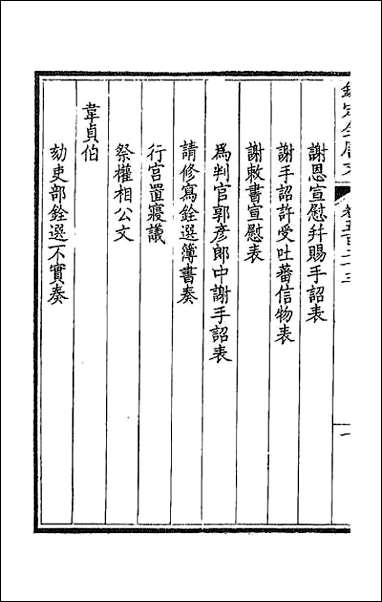 欽定全唐文
卷五百二十三
一
謝恩宣慰幷賜手詔表
謝手詔許受吐蕃信物表
謝敕書宣慰表
爲判官郭彥郎中謝手詔表
請修寫銓選簿書奏
行宮置寢議
祭權相公文
韋貞伯
劾吏部銓選不實奏